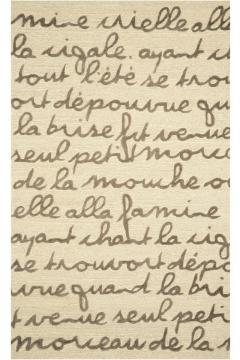 mine crielle alla
la cigale. ayant ch
tout l'été se trou
ort dépourvue qu
la brise fut venue
seul petit morce
de la mouche o
elle alla famine
ayant chant la cig
se trouvort dépo
vue quand la bri
t venue seul peti
morceau de la m